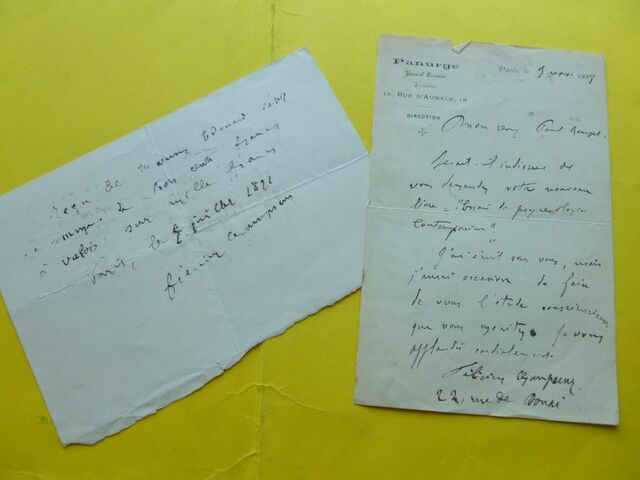 Reçu de
la somme de trois cents francs
à valoir sur mille francs
Paris, le 5 juillet 1891
Félicien Champsaur
Panurge
Journal Parisien
10, RUE D'AUMALE, 10
DIRECTION
Paris, le 5 nov. 188
Mon cher Paul Bourget,
Serait-il indiscret de
vous demander votre nouveau
livre = l'Essai de psychologie
Contemporaine"
J'ai écrit sur vous, mais
j'aurai occasion de faire
de vous l'étude consciencieuse
que vous méritez. Je vous
cordialement.
Félicien Champsaur
22, rue de Douai